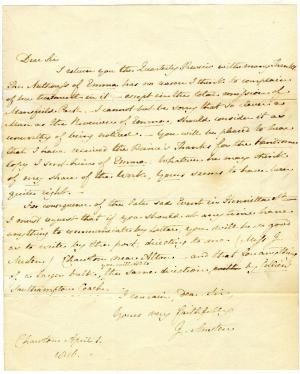 Dear Sir
I return you the Quarterly Review with many Thanks.
The Authoress of Emma has no reason I think to complain
of her treatment in it — except in the total omission of
Mansfield Park. — I cannot but be sorry that so clever a
Man as the Reviewer of Emma, should consider it as
unworthy of being noticed. — You will be pleased to hear
that I have received the Prince's Thanks for the handsome
Copy I sent him of Emma. Whatever he may think
of my share of the Work, Yours seems to have been
quite right. —
In consequence of the late sad Event in Henrietta St —
I must request that if you should at any time have
anything to communicate by Letter, you will be so good
as to write by the post, directing to me (Miss J.
Austen) Chawton near Alton — and that for anything
of a larger bulk, you will add to the same direction, by
Southampton Coach. —
I remain, dear Sir,
Yours very faithfully
J. Austen
Chawton April 1.
1816.